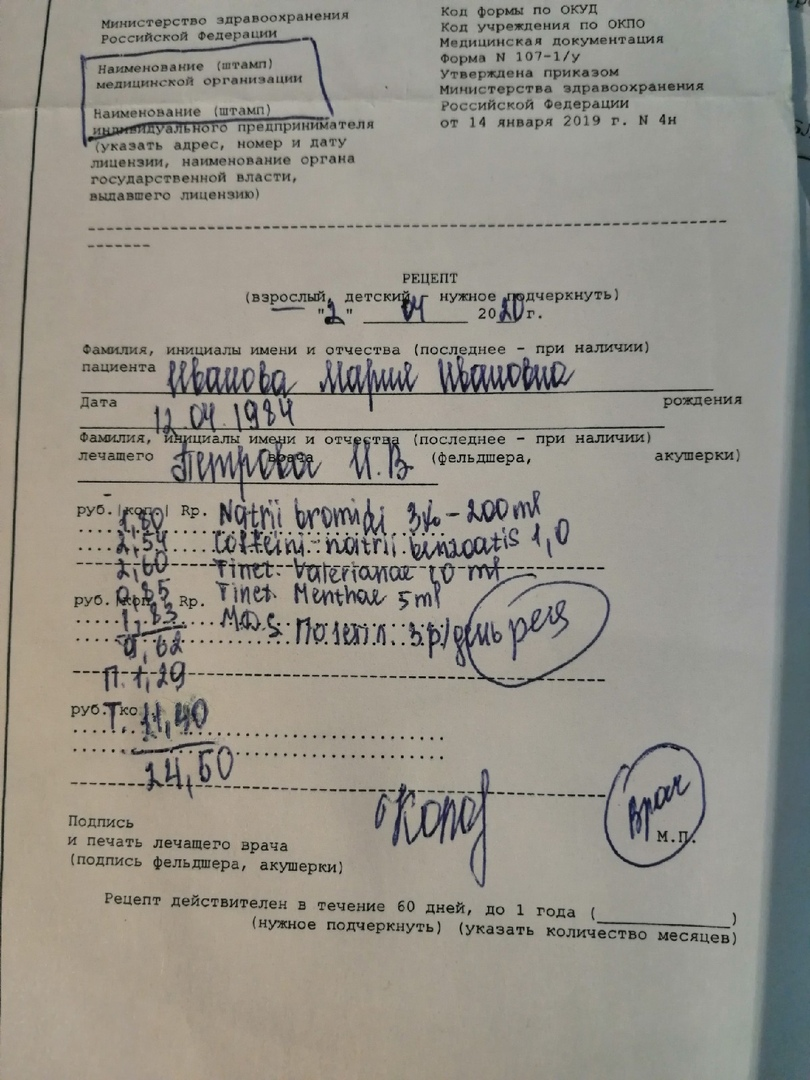 Министерство здравоохранения
Российской Федерации
Наименование (штамп)
медицинской организации
Наименование (штамп)
индивидуального предпринимателя
(указать адрес, номер и дату
лицензии, наименование органа
государственной власти,
выдавшего лицензию)
Код формы по ОКУД
Код учреждения по ОКПО
Медицинская документация
Форма N 107-1/у
Утверждена приказом
Министерства здравоохранения
Российской Федерации
от 14 января 2019 г. N 4н
РЕЦЕПТ
(взрослый, детский - нужное подчеркнуть)
"2" 04 2020 г.
Фамилия, инициалы имени и отчества (последнее - при наличии)
пациента Иванова Мария Ивановна
Дата 12.04.1984 рождения
Фамилия, инициалы имени и отчества (последнее - при наличии)
лечащего врача Петрова И.В (фельдшера, акушерки)
руб.|коп.| Rp. Natrii bromidi 3% - 200 ml
2,54 Coffeini natrii benzoatis 1,0
2,60 Tinct. Valerianae 10 ml
0,85 Tinct. Menthae 5 ml
руб.|коп.| Rp.
1,83 M.D.S. По 1 ст.л. 3 р/день
9,62
П. 1,29
руб.|ко
Т. 11,40
24,60
Врач
Подпись
и печать лечащего врача
(подпись фельдшера, акушерки)
М.П.
Рецепт действителен в течение 60 дней, до 1 года (____________)
(нужное подчеркнуть) (указать количество месяцев)